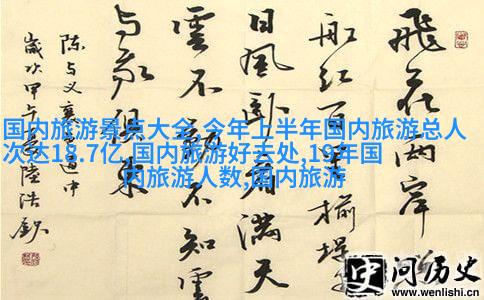 国内旅游景点大全,今年上半年国内旅游总人
次达18.7亿,国内旅游好去处,19年国
内旅游人数,国内旅游
飛花兩岸
船红百里榆堤
日風臥看滿天
雲不動不知雲
与我俱東
陳与义襄邑道中
歲次甲午年陸浩
史问历史
www.wenlishi.cn